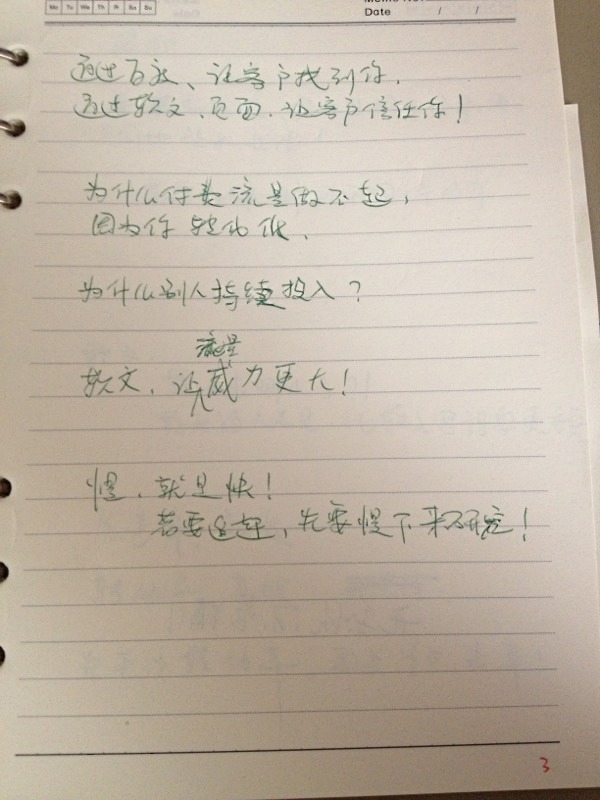 Mo Tu We Th Fr Sa Su
Memo No.
Date / /
通过百度、让客户找到你,
通过软文、页面,让客户信任你!
为什么付费流量做不起,
因为你转化低、
为什么别人持续投入?
软文、让流量威力更大!
慢、就是快!
若要追赶,先要慢下来研究!
3